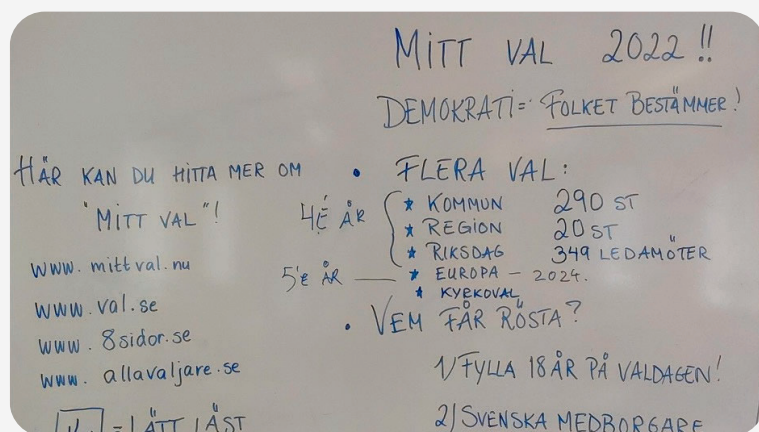 MITT VAL 2022 !!
DEMOKRATI = FOLKET BESTÄMMER!
HÄR KAN DU HITTA MER OM
"MITT VAL"!
www.mittval.nu
www.val.se
www.8sidor.se
www.allavaljare.se
= LÄTT LÄST
• FLERA VAL:
4'E ÅR
★ KOMMUN 290 ST
★ REGION 20 ST
★ RIKSDAG 349 LEDAMÖTER
5'E ÅR — ★ EUROPA – 2024.
★ KYRKOVAL
• VEM FÅR RÖSTA?
1/ FYLLA 18 ÅR PÅ VALDAGEN!
2/ SVENSKA MEDBORGARE